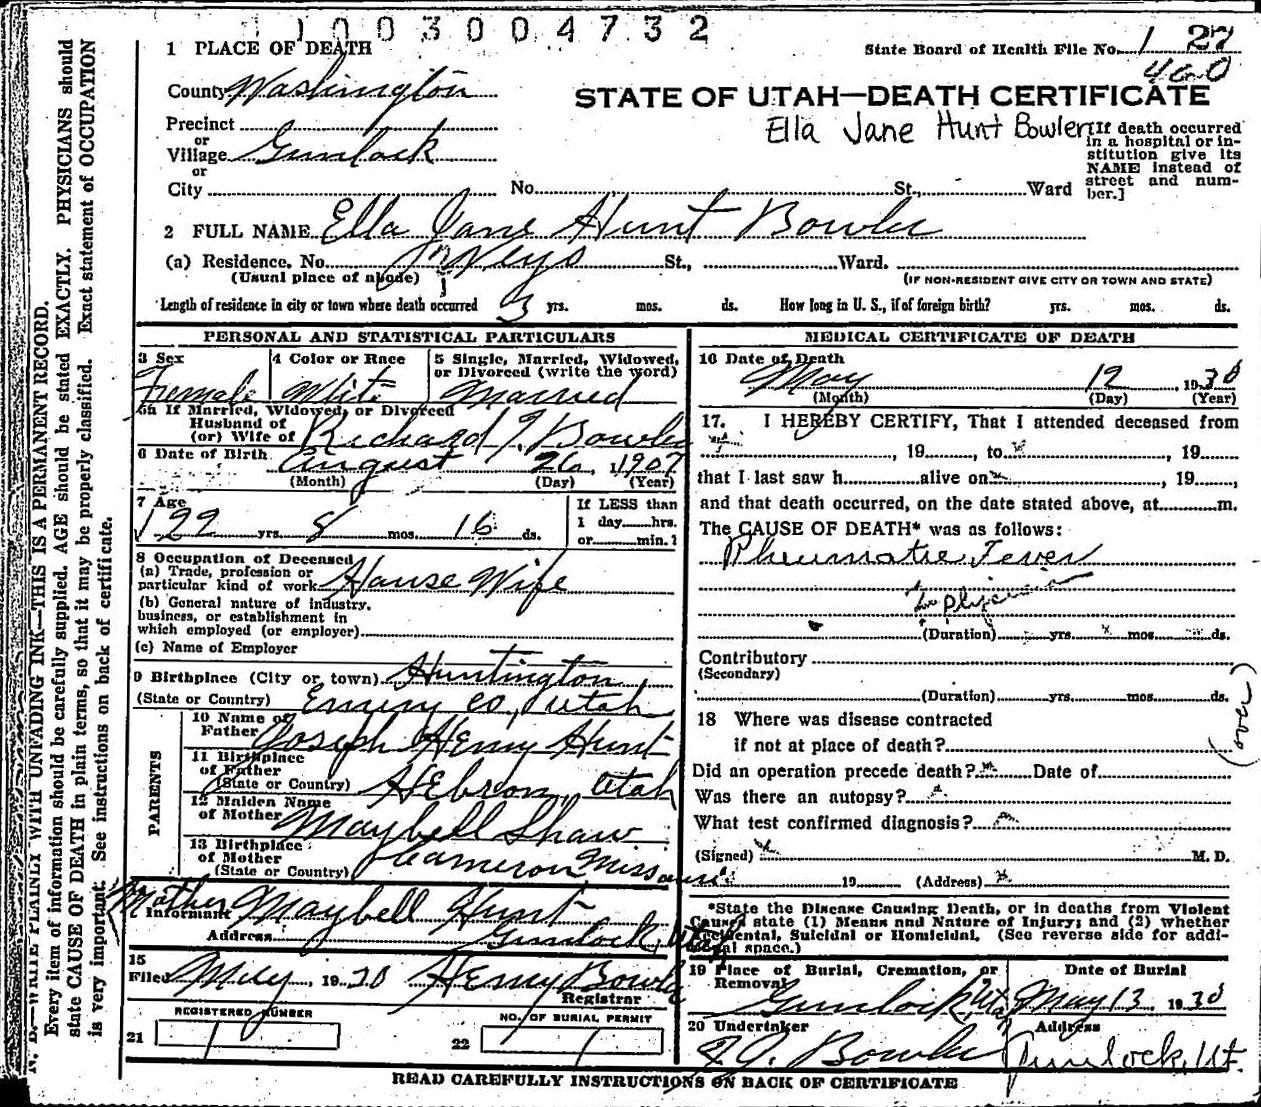 1003004732
1 PLACE OF DEATH
State Board of Health File No. 1 27
460
County Washington
STATE OF UTAH—DEATH CERTIFICATE
Precinct
or
Village Gunlock
or
City No. St., Ward
Ella Jane Hunt Bowler
[If death occurred
in a hospital or in-
stitution give its
NAME instead of
street and num-
ber.]
2 FULL NAME Ella Jane Hunt Bowler
(a) Residence. No. Veyo St., Ward.
(Usual place of abode)
(IF NON-RESIDENT GIVE CITY OR TOWN AND STATE)
Length of residence in city or town where death occurred 3 yrs. mos. ds. How long in U. S., if of foreign birth? yrs. mos. ds.
PERSONAL AND STATISTICAL PARTICULARS
3 Sex
Female
4 Color or Race
White
5 Single, Married, Widowed,
or Divorced (write the word)
Married
5a If Married, Widowed, or Divorced
Husband of
(or) Wife of Richard J. Bowler
6 Date of Birth August 26, 1907
(Month) (Day) (Year)
7 Age
22 yrs. 8 mos. 16 ds.
If LESS than
1 day hrs.
or min.?
8 Occupation of Deceased
(a) Trade, profession or
particular kind of work House Wife
(b) General nature of industry,
business, or establishment in
which employed (or employer)
(c) Name of Employer
9 Birthplace (City or town) Huntington
(State or Country) Emery Co, Utah
PARENTS
10 Name of
Father Joseph Henry Hunt
11 Birthplace
of Father
(State or Country) Hebron Utah
12 Maiden Name
of Mother Maybell Shaw
13 Birthplace
of Mother
(State or Country) Cameron Missouri
Mother
Informant Maybell Hunt
Address Gunlock, Utah
15
Filed May, 1930 Henry Bowler
Registrar
REGISTERED NUMBER
21 1
NO. OF BURIAL PERMIT
22 1
MEDICAL CERTIFICATE OF DEATH
16 Date of Death
May 12, 1930
(Month) (Day) (Year)
17. I HEREBY CERTIFY, That I attended deceased from
, 19 , to , 19
that I last saw h alive on , 19 ,
and that death occurred, on the date stated above, at m.
The CAUSE OF DEATH* was as follows:
Rheumatic Fever
No physician
(Duration) yrs. mos. ds.
Contributory
(Secondary)
(Duration) yrs. mos. ds.
18 Where was disease contracted
if not at place of death?
Did an operation precede death? Date of
Was there an autopsy?
What test confirmed diagnosis?
(Signed) M. D.
19 (Address)
*State the Disease Causing Death, or in deaths from Violent
Causes state (1) Means and Nature of Injury; and (2) whether
Accidental, Suicidal or Homicidal. (See reverse side for addi-
tional space.)
19 Place of Burial, Cremation, or
Removal
Gunlock, Utah
Date of Burial
May 13, 1930
20 Undertaker
Bowler
Address
Gunlock, Ut.
READ CAREFULLY INSTRUCTIONS ON BACK OF CERTIFICATE
N. B.—WRITE PLAINLY WITH UNFADING INK—THIS IS A PERMANENT RECORD.
Every item of information should be carefully supplied. AGE should be stated EXACTLY. PHYSICIANS should
state CAUSE OF DEATH in plain terms, so that it may be properly classified. Exact statement of OCCUPATION
is very important. See instructions on back of certificate.